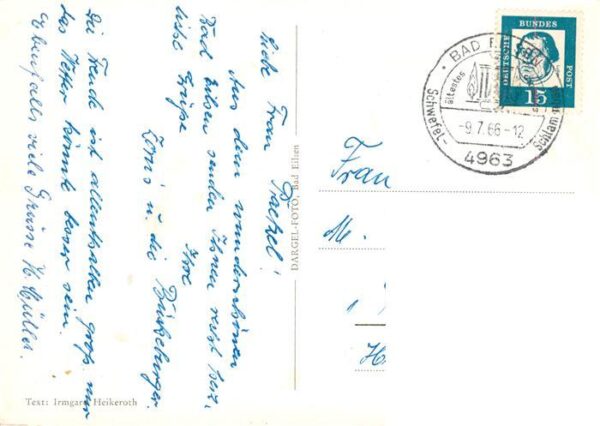 Liebe Frau
Aus dem wunderschönen
Bad Eilsen senden Ihnen recht herz-
liche Grüsse Ihre
u. die Bückeburger.
Die Freude ist allenthalben groß, nur
das Wetter könnte besser sein.
Ebenfalls viele Grüsse H. Müller.
Text: Irmgard Heikeroth
DARGEL-FOTO, Bad Eilsen
DEUTSCHE
BUNDES
POST
15
BAD
ältestes
Schwefel-
Schlamm
-9.7.66-12
4963
Frau
M.
H